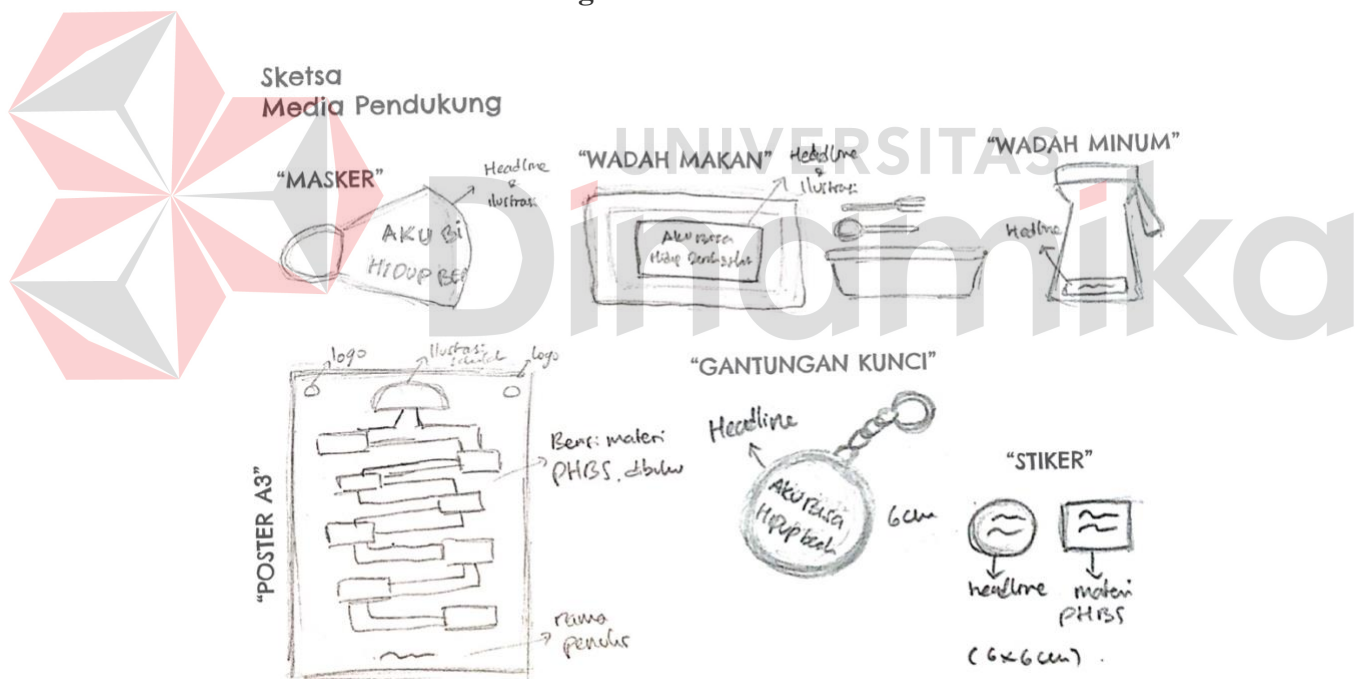 Sketsa
Media Pendukung
UNIVERSITAS
Dinamika
"MASKER"
Headline
&
ilustrasi
AKU BI
HIDUP BE
"WADAH MAKAN"
Headline
&
ilustrasi
Aku Bisa
Hidup
"WADAH MINUM"
Headline
"POSTER A3"
logo
Ilustrasi
logo
materi
PHBS,
nama
penulis
"GANTUNGAN KUNCI"
Headline
AKU BISA
Hidup
6cm
"STIKER"
headline
materi
PHBS
(6x6cm).